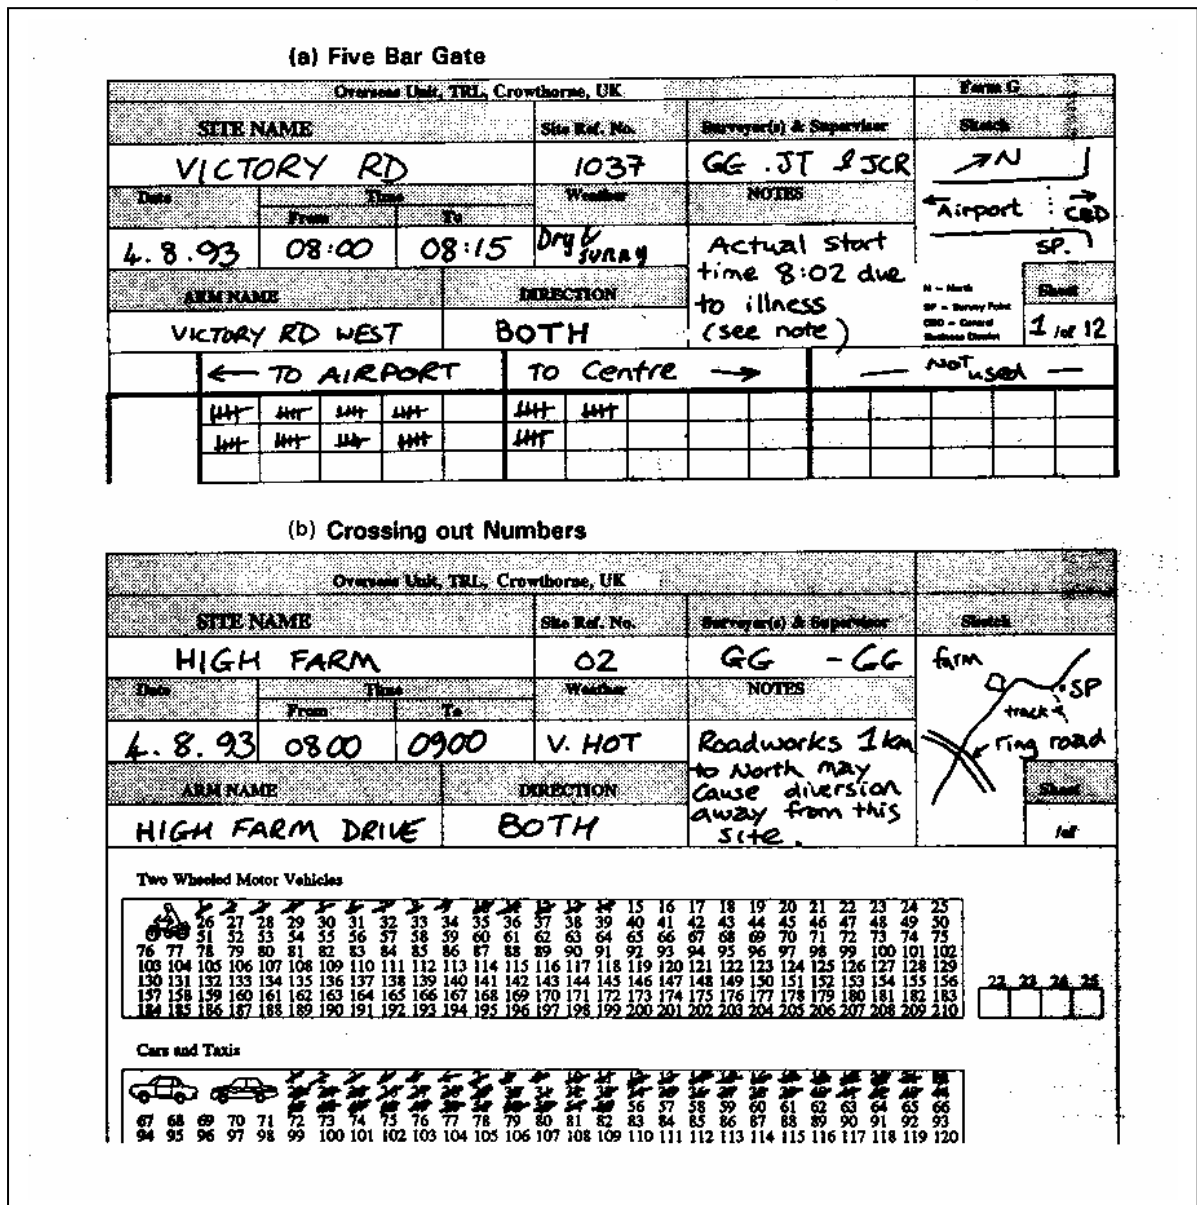 (a) Five Bar Gate
Overseas Unit, TRL, Crowthorne, UK
Form G
SITE NAME
Site Ref. No.
Surveyor(s) & Supervisor
Sketch
VICTORY RD
1037
GG . JT & JCR
N
Date
Time
Weather
NOTES
From
To
Airport
CBD
4.8.93
08:00
08:15
Dry &
sunny
Actual start
time 8:02 due
to illness
(see note)
SP.
ARM NAME
DIRECTION
N - North
SP - Survey Point
CBD - Central
Business District
Sheet
VICTORY RD WEST
BOTH
1 /of 12
← TO AIRPORT
TO Centre →
— Not used —
(b) Crossing out Numbers
Overseas Unit, TRL, Crowthorne, UK
SITE NAME
Site Ref. No.
Surveyor(s) & Supervisor
Sketch
HIGH FARM
02
GG - GG
farm
Date
Time
Weather
NOTES
SP
From
To
track
4.8.93
0800
0900
V. HOT
Roadworks 1 km
to North may
cause diversion
away from this
site.
ring road
ARM NAME
DIRECTION
Sheet
HIGH FARM DRIVE
BOTH
/of
Two Wheeled Motor Vehicles
15 16 17 18 19 20 21 22 23 24 25
26 27 28 29 30 31 32 33 34 35 36 37 38 39 40 41 42 43 44 45 46 47 48 49 50
51 52 53 54 55 56 57 58 59 60 61 62 63 64 65 66 67 68 69 70 71 72 73 74 75
76 77 78 79 80 81 82 83 84 85 86 87 88 89 90 91 92 93 94 95 96 97 98 99 100 101 102
103 104 105 106 107 108 109 110 111 112 113 114 115 116 117 118 119 120 121 122 123 124 125 126 127 128 129
130 131 132 133 134 135 136 137 138 139 140 141 142 143 144 145 146 147 148 149 150 151 152 153 154 155 156
157 158 159 160 161 162 163 164 165 166 167 168 169 170 171 172 173 174 175 176 177 178 179 180 181 182 183
184 185 186 187 188 189 190 191 192 193 194 195 196 197 198 199 200 201 202 203 204 205 206 207 208 209 210
22 23 24 25
Cars and Taxis
56 57 58 59 60 61 62 63 64 65 66
67 68 69 70 71 72 73 74 75 76 77 78 79 80 81 82 83 84 85 86 87 88 89 90 91 92 93
94 95 96 97 98 99 100 101 102 103 104 105 106 107 108 109 110 111 112 113 114 115 116 117 118 119 120